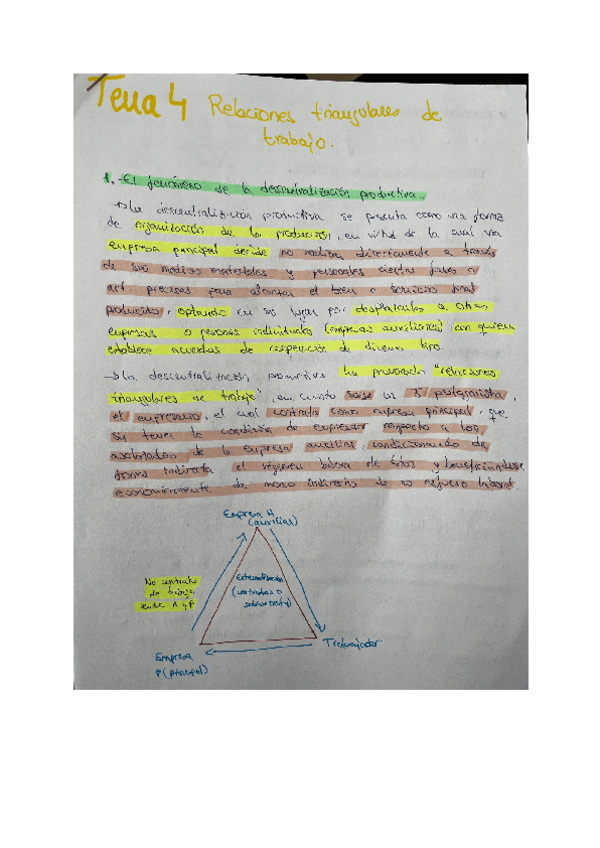 Tema 4 Relaciones triangulares de
trabajo.
1.-El fenómeno de la descentralización productiva.
→La descentralización productiva se presenta como una forma
de organización de la producción, en virtud de la cual una
empresa principal decide no realizar directamente a través
de sus medios materiales y personales ciertas fases o
act. precisas para alcanzar el bien o servicio final
producido, optando en su lugar por desplazarlas a otras
empresas o personas individuales (empresas auxiliares) con quienes
establece acuerdos de cooperación de diverso tipo.
→La descentralización productiva ha provocado "relaciones
triangulares de trabajo", en cuanto un 3º protagonista,
el empresario, el cual contrata como empresa principal, que
sin tener la condición de empleador respecto a los
asalariados de la empresa auxiliar, condicionando de
forma indirecta el régimen laboral de éstos y beneficiándose
económicamente de modo indirecto de su esfuerzo laboral.
Empresa A
(auxiliar)
No contrato
de trabajo
entre A y P
Externalización
(contratas o
subcontrata)
Trabajador
Empresa
P (principal)